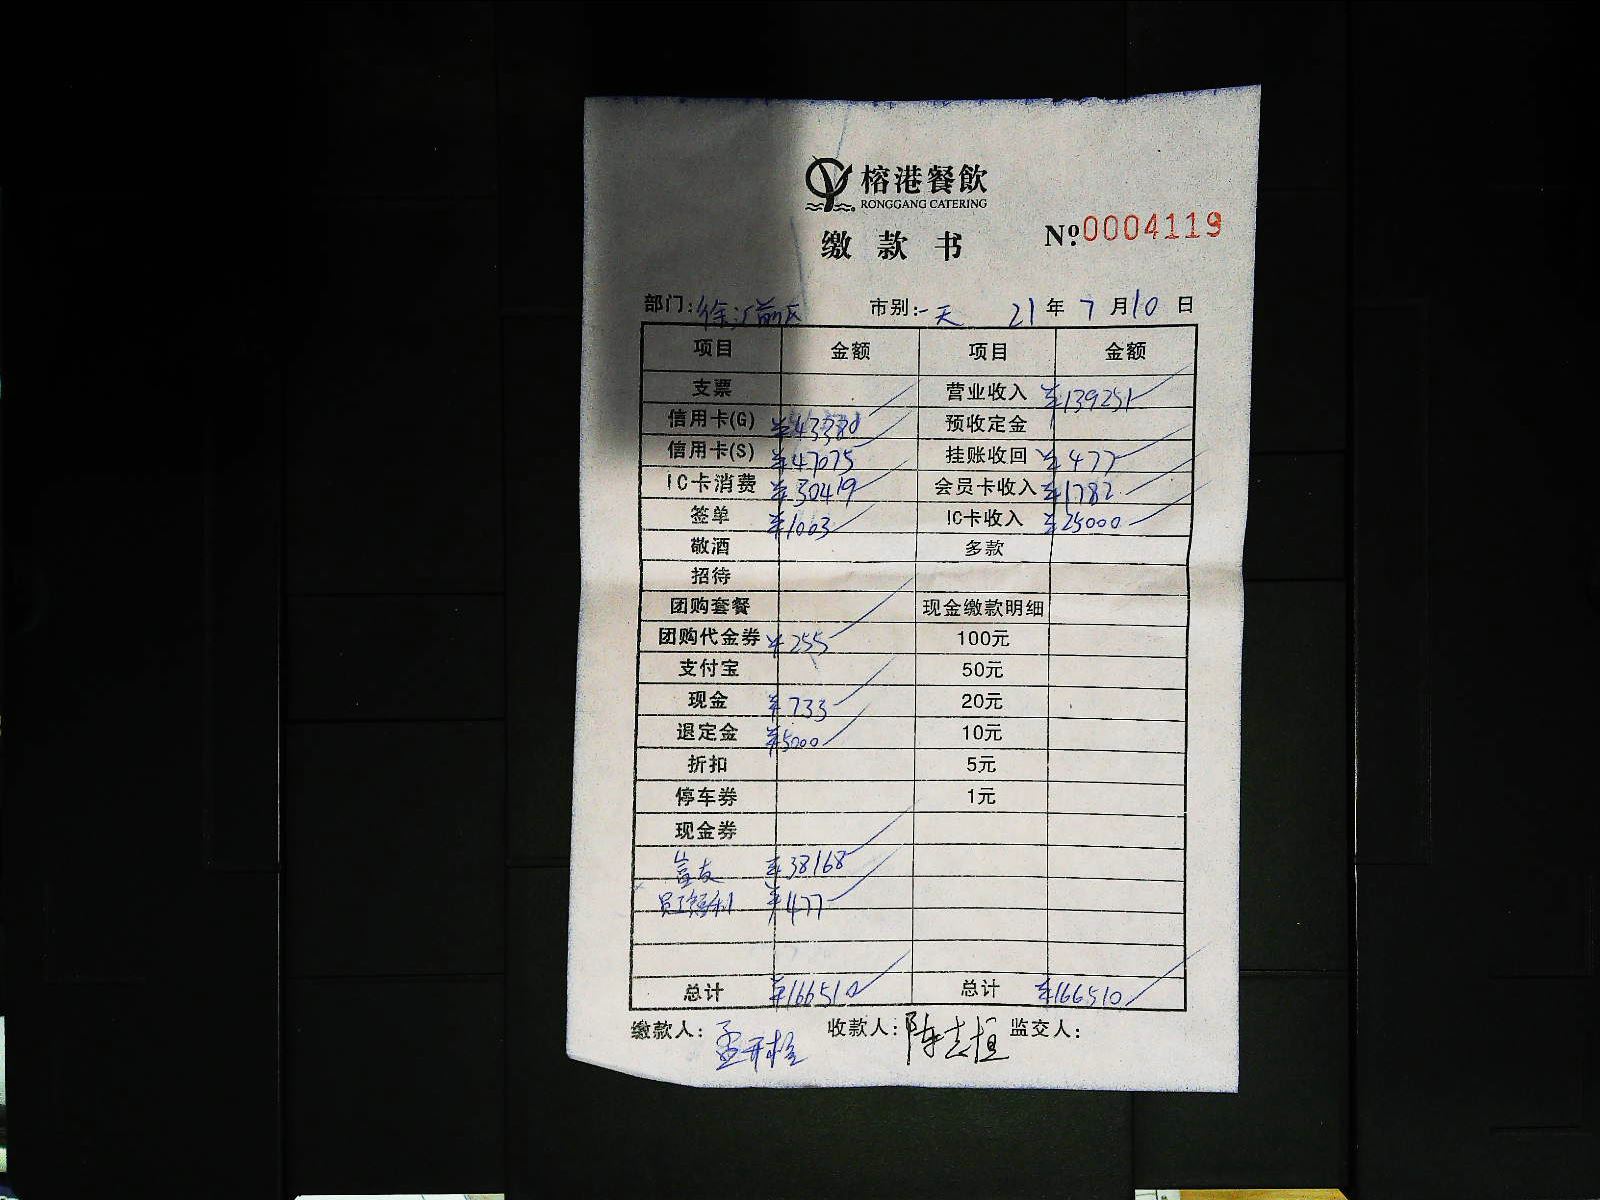 榕港餐飲
RONGGANG CATERING
缴款书 Nº 0004119
部门: 徐汇前区 市别: 一天 21 年 7 月 10 日
项目 金额 项目 金额
支票 营业收入 ¥139251
信用卡(G) ¥43380 预收定金
信用卡(S) ¥47075 挂账收回 ¥477
IC卡消费 ¥30419 会员卡收入 ¥1782
签单 ¥1003 IC卡收入 ¥25000
敬酒 多款
招待
团购套餐 现金缴款明细
团购代金券 ¥255 100元
支付宝 50元
现金 ¥733 20元
退定金 ¥5000 10元
折扣 5元
停车券 1元
现金券
富友 ¥38168
员工福利 ¥477
总计 ¥166510 总计 ¥166510
缴款人: 收款人: 监交人: